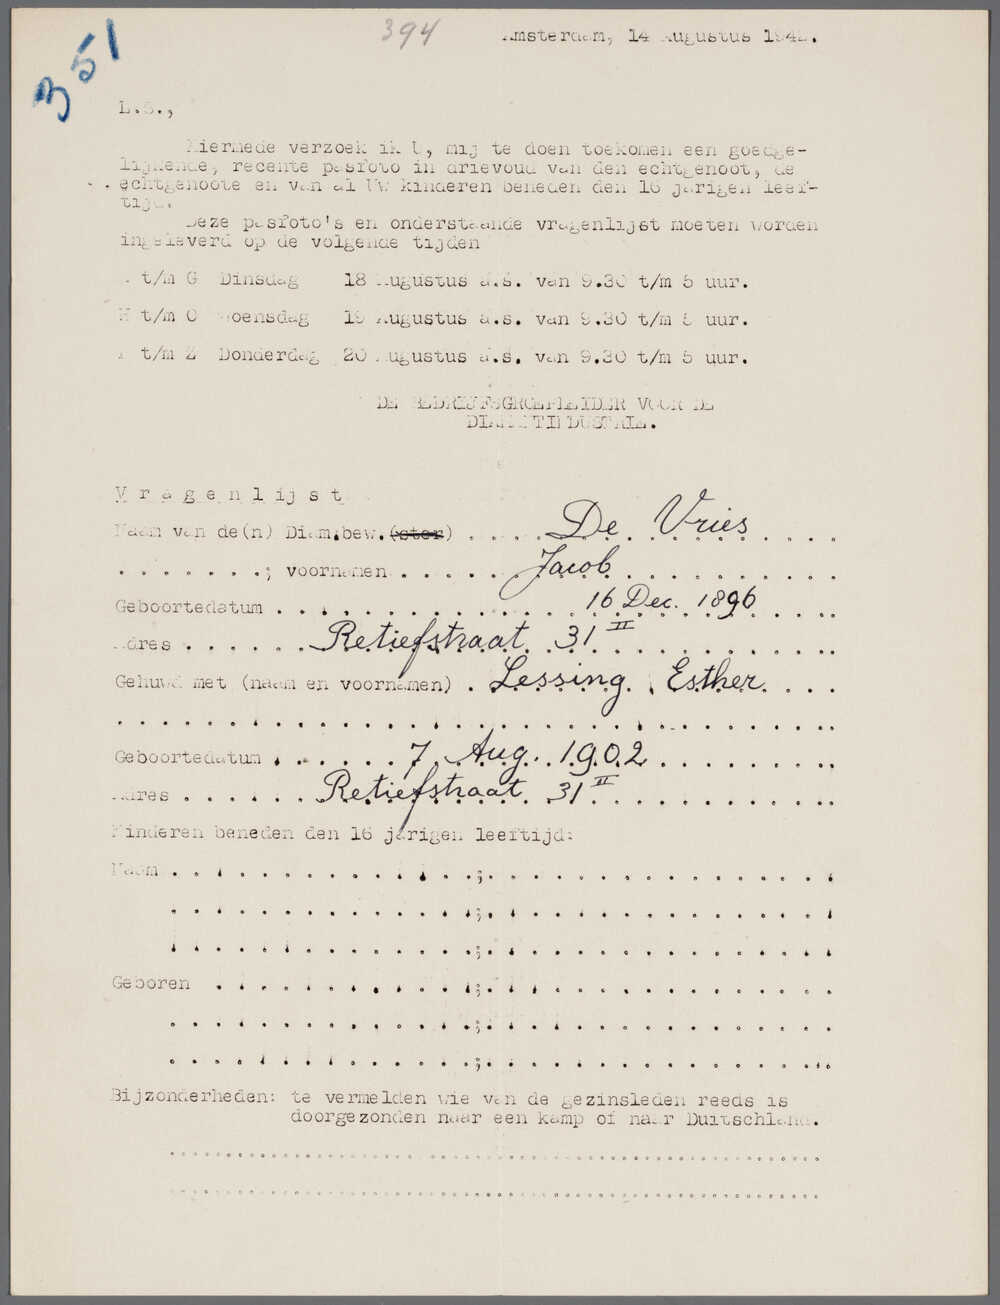 351
394
Amsterdam, 14 Augustus 1942.
L.S.,
Hiermede verzoek ik U, mij te doen toekomen een goedge-
lijkende, recente pasfoto in drievoud van den echtgenoot, de
echtgenoote en van al Uw kinderen beneden den 16 jarigen leef-
tijd.
Deze pasfoto's en onderstaande vragenlijst moeten worden
ingeleverd op de volgende tijden
A t/m G Dinsdag 18 Augustus a.s. van 9.30 t/m 5 uur.
H t/m O Woensdag 19 Augustus a.s. van 9.30 t/m 5 uur.
P t/m Z Donderdag 20 Augustus a.s. van 9.30 t/m 5 uur.
DE BEDRIJFSGROEPLEIDER VOOR DE
DIAMANTINDUSTRIE.
Vragenlijst
Naam van de(n) Diam.bew.(ster) . . . . . De Vries . . . .
. . . . . . . ; voornamen . . . . . . Jacob . . . . . . . . . .
Geboortedatum . . . . . . . . . . . . . 16 Dec. 1896 . . .
Adres . . . . . . Retiefstraat 31 II . . . . . . . . . .
Gehuwd met (naam en voornamen) . Lessing Esther . . . .
. . . . . . . . . . . . . . . . . . . . . . . . . . . . . . . .
Geboortedatum . . . . . . 7 Aug. 1902 . . . . . . . .
Adres . . . . . . Retiefstraat 31 II . . . . . . . . . .
Kinderen beneden den 16 jarigen leeftijd:
Naam . . . . . . . . . . . . . . ; . . . . . . . . . . . . . . . .
. . . . . . . . . . . . . . ; . . . . . . . . . . . . . . . .
. . . . . . . . . . . . . . ; . . . . . . . . . . . . . . . .
Geboren . . . . . . . . . . . . ; . . . . . . . . . . . . . . . .
. . . . . . . . . . . . . . ; . . . . . . . . . . . . . . . .
. . . . . . . . . . . . . . ; . . . . . . . . . . . . . . . .
Bijzonderheden: te vermelden wie van de gezinsleden reeds is
doorgezonden naar een kamp of naar Duitschland.
. . . . . . . . . . . . . . . . . . . . . . . . . . . . . . . .
. . . . . . . . . . . . . . . . . . . . . . . . . . . . . . . .